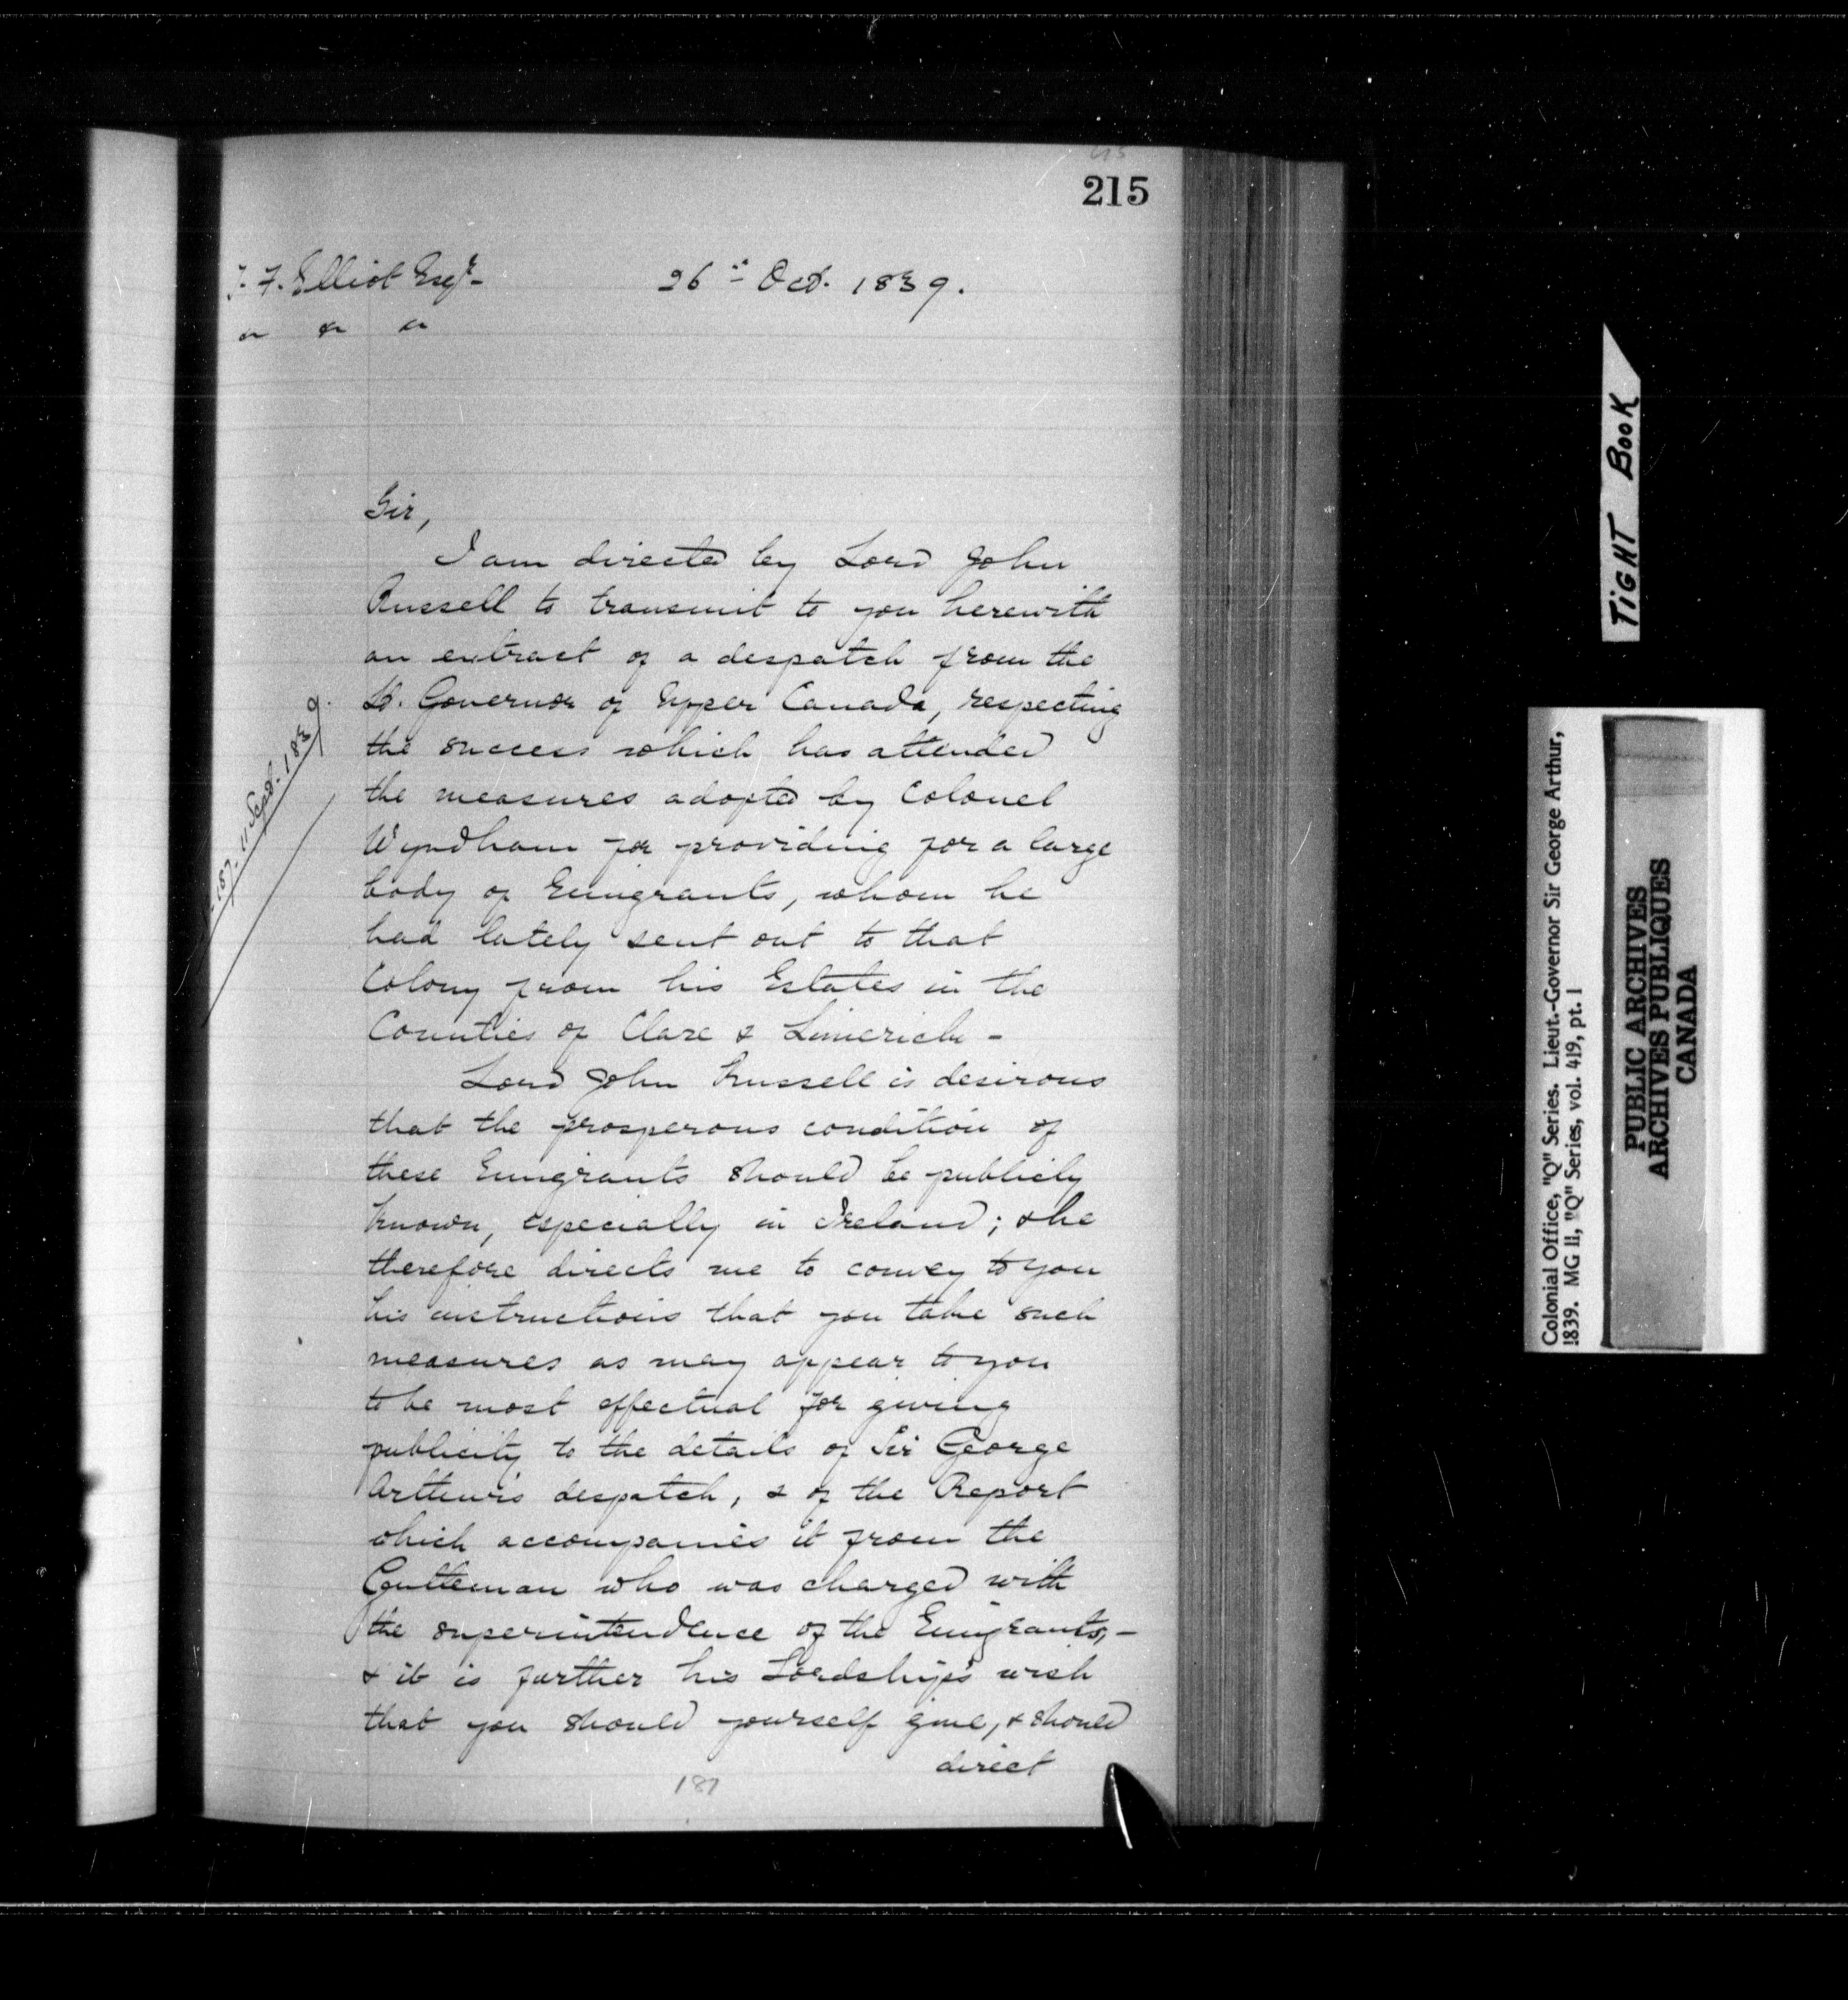 215
T. F. Elliot Esqr.
26th Oct. 1839.
Sir,
I am directed by Lord John
Russell to transmit to you herewith
an extract of a despatch from the
Lt. Governor of Upper Canada, respecting
the success which has attended
the measures adopted by Colonel
Wyndham for providing for a large
body of Emigrants, whom he
had lately sent out to that
Colony from his Estates in the
Counties of Clare & Limerick -
Lord John Russell is desirous
that the prosperous condition of
these Emigrants should be publicly
known, especially in Ireland; & he
therefore directs me to convey to you
his instructions that you take such
measures as may appear to you
to be most effectual for giving
publicity to the details of Sir George
Arthur's despatch, & of the Report
which accompanies it from the
Gentleman who was charged with
the superintendence of the Emigrants, -
& it is further his Lordship's wish
that you should yourself give, & should
direct
187
187. 11 Sept. 1839.
TIGHT BOOK
Colonial Office, "Q" Series. Lieut.-Governor Sir George Arthur,
1839. MG 11, "Q" Series, vol. 419, pt. 1
PUBLIC ARCHIVES
ARCHIVES PUBLIQUES
CANADA